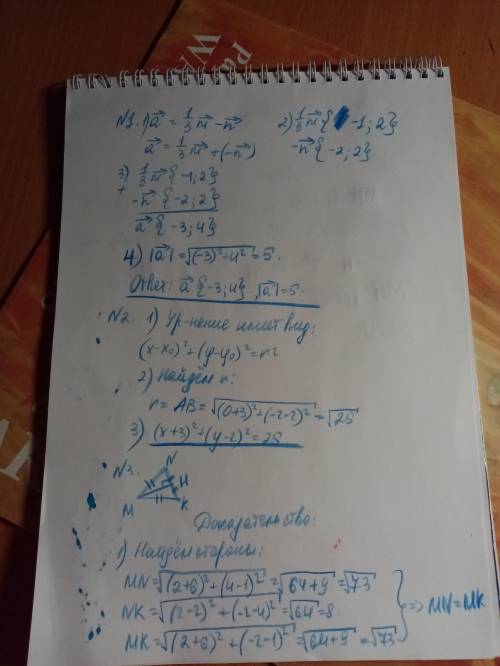 №1. 1) a⃗ = 1/3 m⃗ - n⃗
a⃗ = 1/3 m⃗ + (-n⃗)
2) 1/3 m⃗ {-1; 2}
-n⃗ {-2; 2}
3) 1/3 m⃗ {-1; 2}
+ -n⃗ {-2; 2}
a⃗ {-3; 4}
4) |a⃗| = √((-3)²+4²) = 5.
Ответ: a⃗ {-3; 4}, |a⃗| = 5.
№2. 1) Ур-нение имеет вид:
(x-x₀)²+(y-y₀)²=r²
2) Найдём r:
r = AB = √((0+3)²+(-2-2)²) = √25
3) (x+3)²+(y-2)²=25
№3.
N
H
M K
Доказательство:
1) Найдём стороны:
MN = √((2+6)²+(4-1)²) = √(64+9) = √73
NK = √((2-2)²+(-2-4)²) = √64 = 8.
MK = √((2+6)²+(-2-1)²) = √(64+9) = √73
=> MN = MK